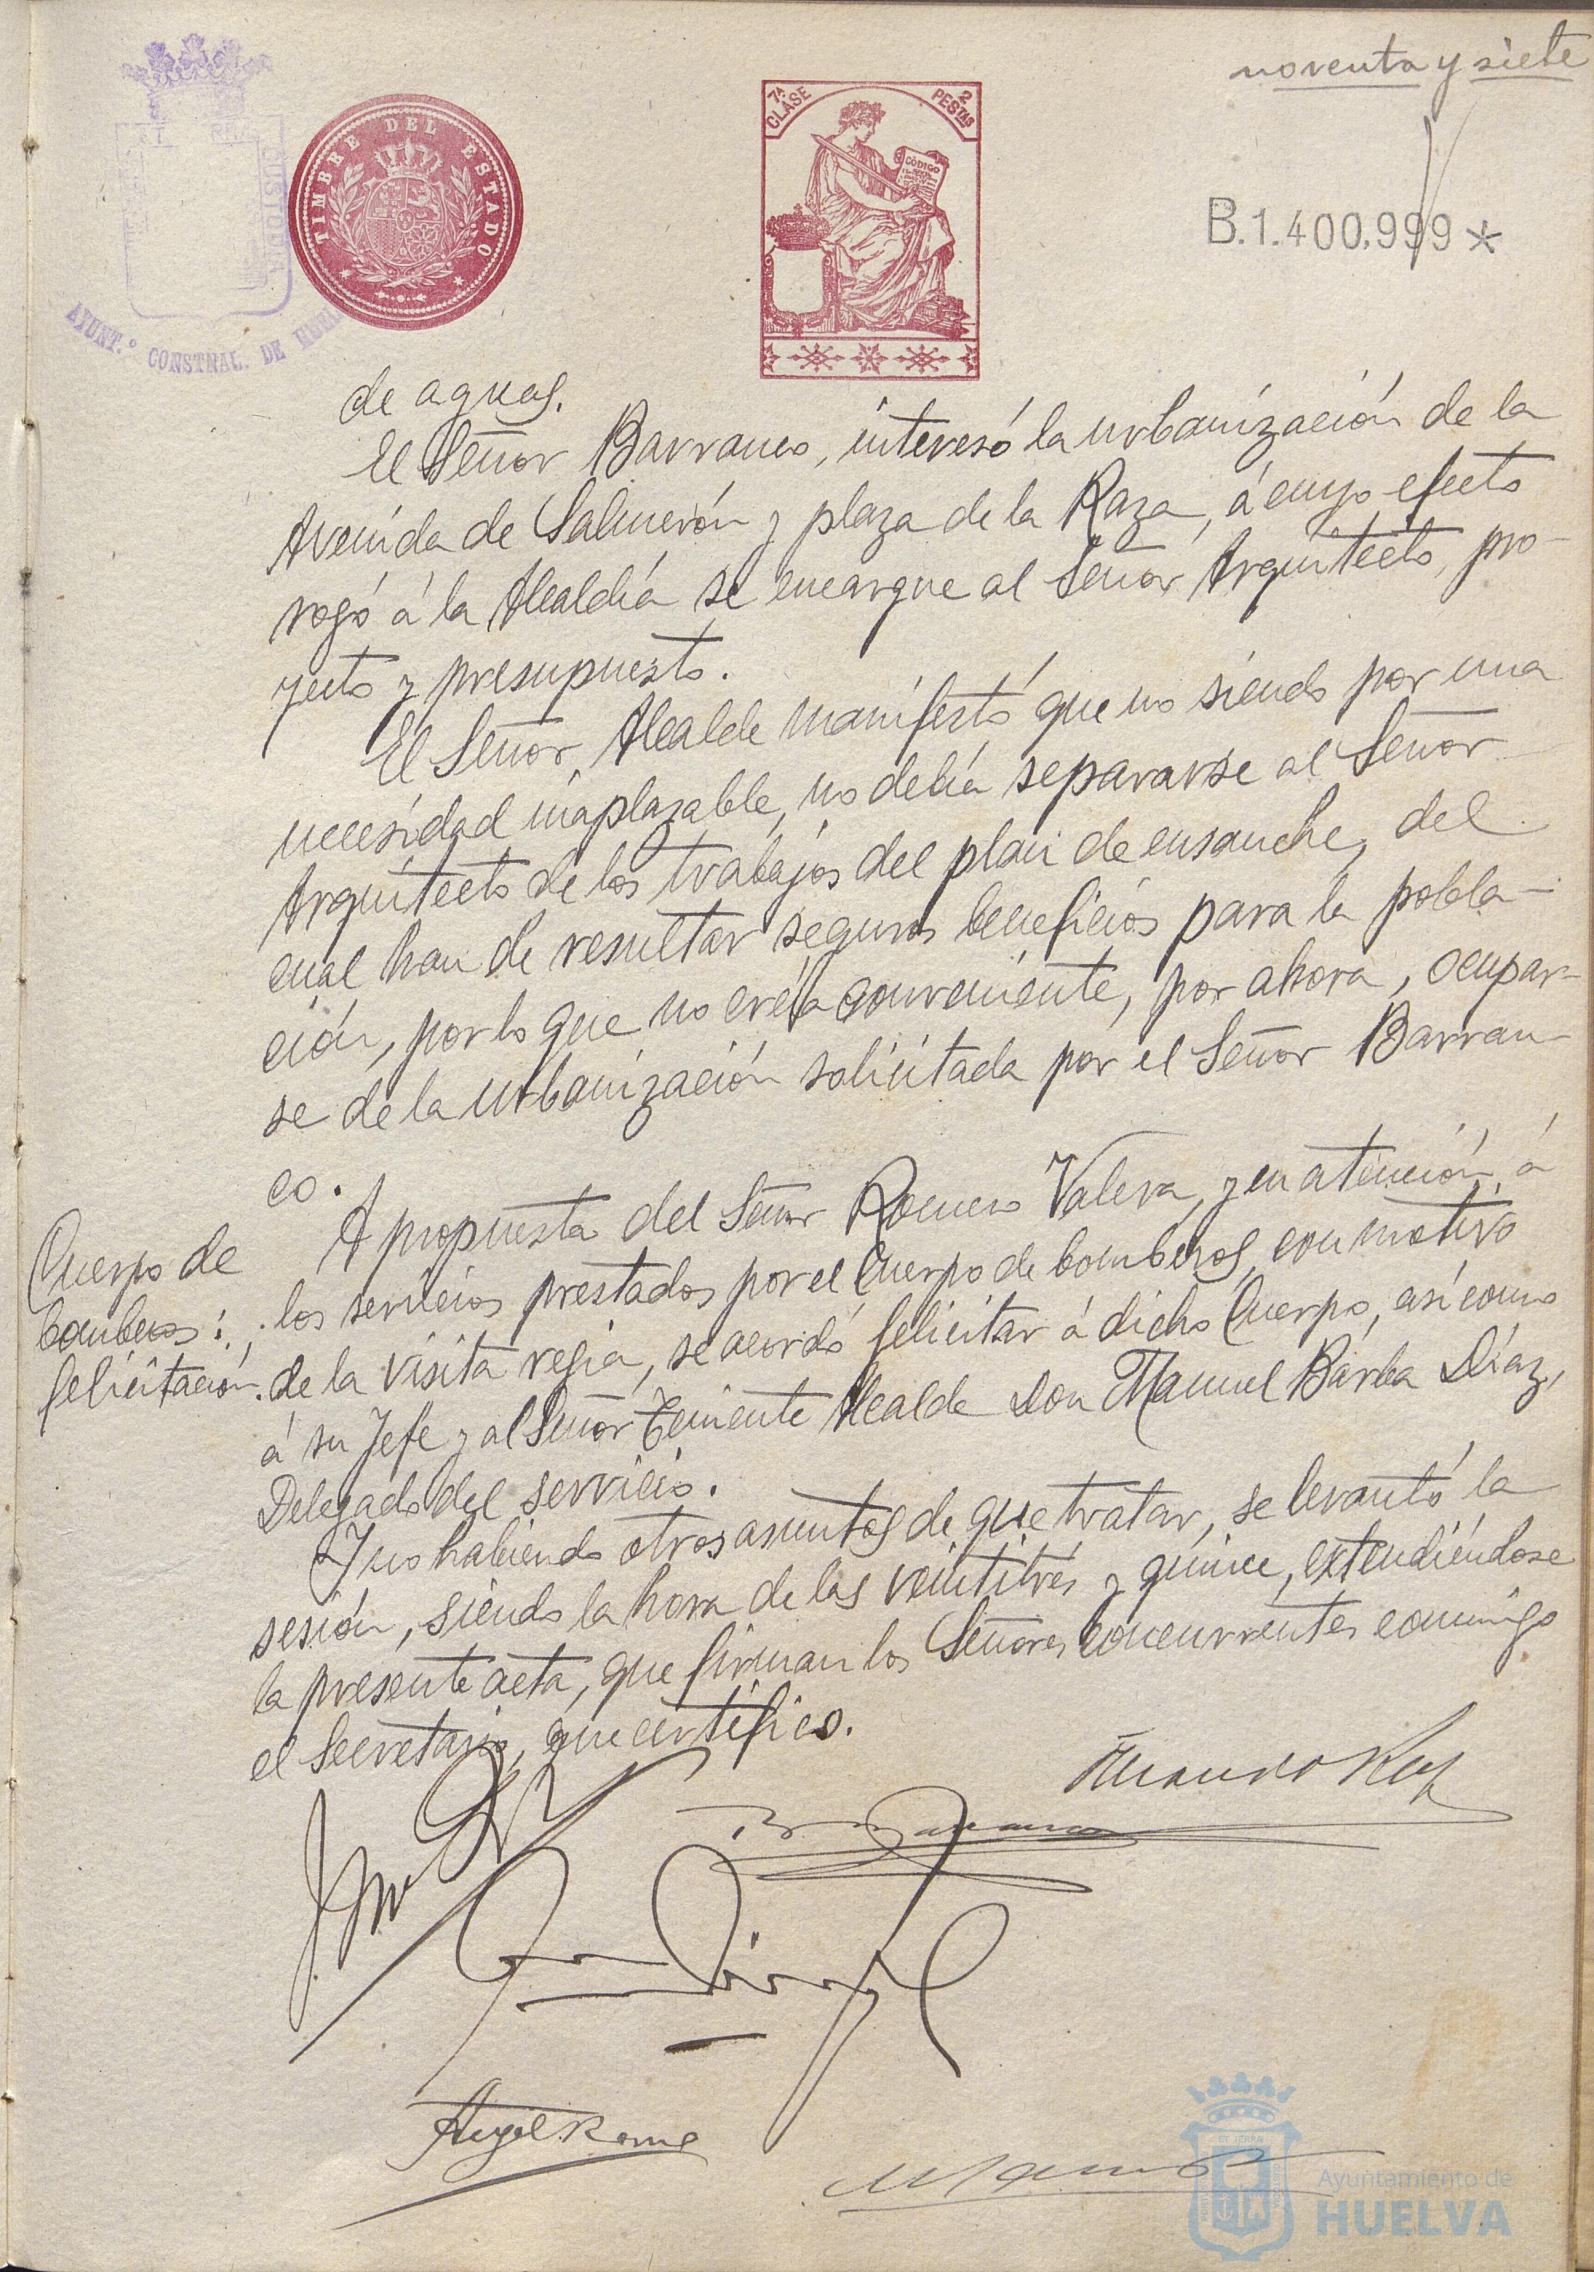 noventa y siete
TIMBRE DEL ESTADO
7ª CLASE
2 PESTAS
CÓDIGO
B.1.400.999 *
AYUNT.º CONSTNAL. DE
de aguas.
El Señor Barranco, interesó la urbanización de la
Avenida de Salmerón y plaza de la Raza, á cuyo efecto
rogó á la Alcaldía se encargue al Señor Arquitecto, pro-
yecto y presupuesto.
El Señor Alcalde manifestó que no siendo por una
necesidad inaplazable, no debía separarse al Señor
Arquitecto de los trabajos del plan de ensanche, del
cual han de resultar seguros beneficios para la pobla-
ción, por lo que no creía conveniente, por ahora, ocupar-
se de la urbanización solicitada por el Señor Barran-
co.
Cuerpo de
bomberos:
felicitación.
A propuesta del Señor Romero Valera, y en atención á
los servicios prestados por el Cuerpo de bomberos, con motivo
de la visita regia, se acordó felicitar á dicho Cuerpo, así como
á su Jefe y al Señor Teniente Alcalde Don Manuel Barba Díaz,
Delegado del servicio.
Y no habiendo otros asuntos de que tratar, se levantó la
sesión, siendo la hora de las veintitrés y quince, extendiéndose
la presente acta, que firman los Señores concurrentes conmigo
el Secretario, que certifico.
Ayuntamiento de
HUELVA